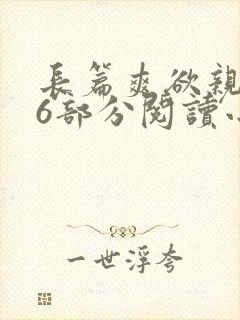 長篇爽欲親
6部分閱讀小
一世浮夸